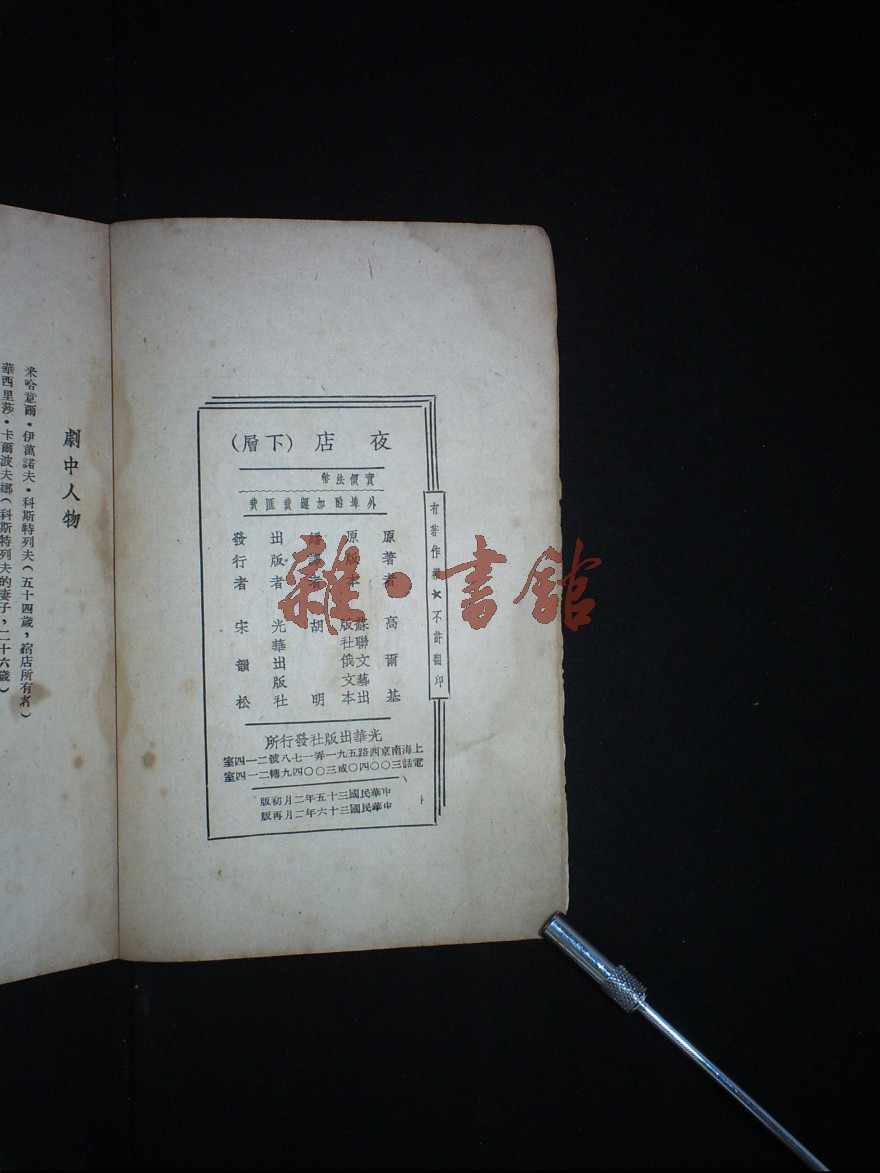 夜店（下層）
實價法幣
外埠酌加郵費匯費
原著者 高爾基
原版本 蘇聯文藝出版社俄文本
譯者 胡明
出版者 光華出版社
發行者 宋韻松
光華出版社發行所
上海南京西路五九一弄一七八號二一四室
電話三〇〇四〇或三〇〇四九轉二一四室
中華民國三十五年二月初版
中華民國三十六年二月再版
有著作權 不許翻印
劇中人物
米哈意爾·伊萬諾夫·科斯特列夫（五十四歲，宿店所有者）
華西里莎·卡爾波夫娜（科斯特列夫的妻子，二十六歲）
雜·書館